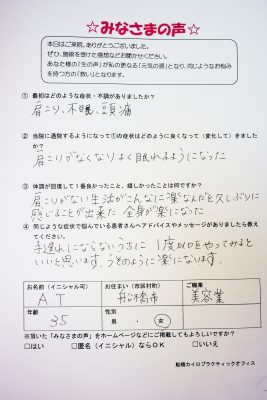 ☆みなさまの声☆
本日はご来院、ありがとうございました。
ぜひ、施術を受けた感想などお聞かせください。
あなた様の「生の声」が私の更なる「元気の源」となり、同じようなお悩み
を持つ方の「救い」となります。
① 最初はどのような症状・不調がありましたか?
肩こり、不眠、頭痛
② 当院に通院するようになって①の症状はどのように良くなって(変化して)きました
か?
肩こりがなくなりよく眠れるようになった
③ 体調が回復して1番良かったこと、嬉しかったことは何ですか?
肩こりがない生活がこんなに楽なんだと久しぶりに
感じることが出来た 全身が楽になった
④ 同じような症状で悩んでいる患者さんへアドバイスやメッセージがありましたら教え
てください。
手遅れにならないうちに、1度カイロをやってみると
いいと思います。うそのように楽になります。
お名前(イニシャル可) お住まい(市区町村) ご職業
A T 船橋市 美容業
年齢 性別
35 男・女
※頂いた「みなさまの声」をホームページなどにご掲載してもよろしいですか?
□はい □匿名(イニシャル)ならOK □いいえ
船橋カイロプラクティックオフィス